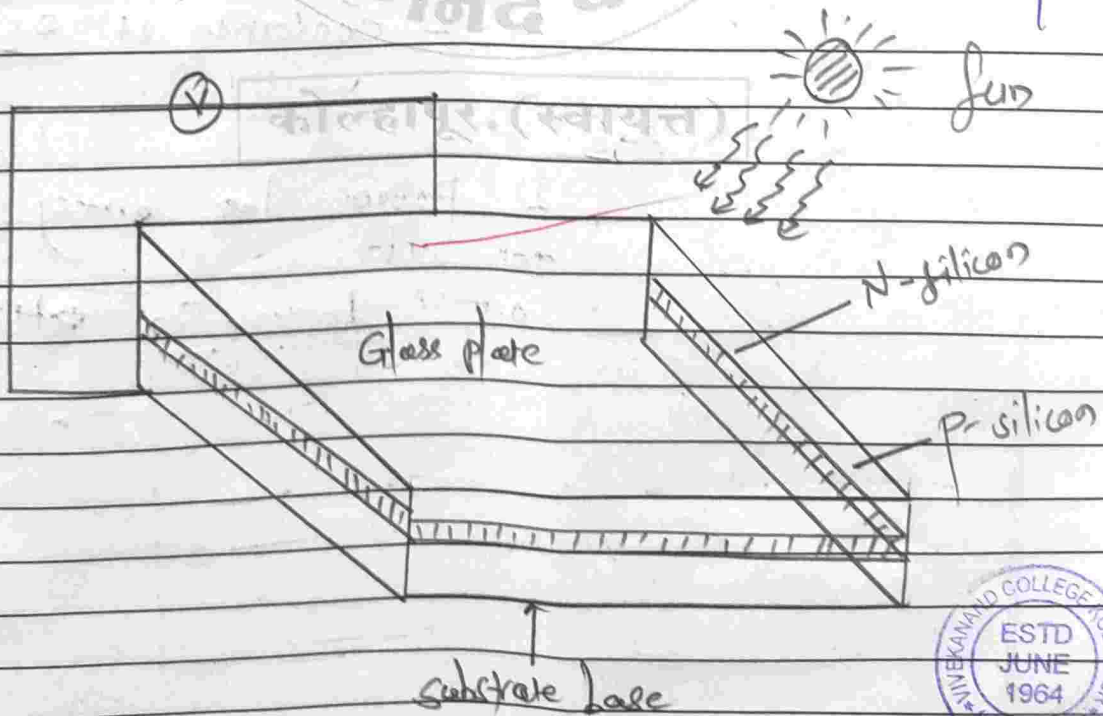 मंदि
Sun
V
कोल्हापूर.(स्वायत्त)
N-silicon
Glass plate
P-silicon
substrate base
VIVEKANAND COLLEGE
ESTD
JUNE
1964